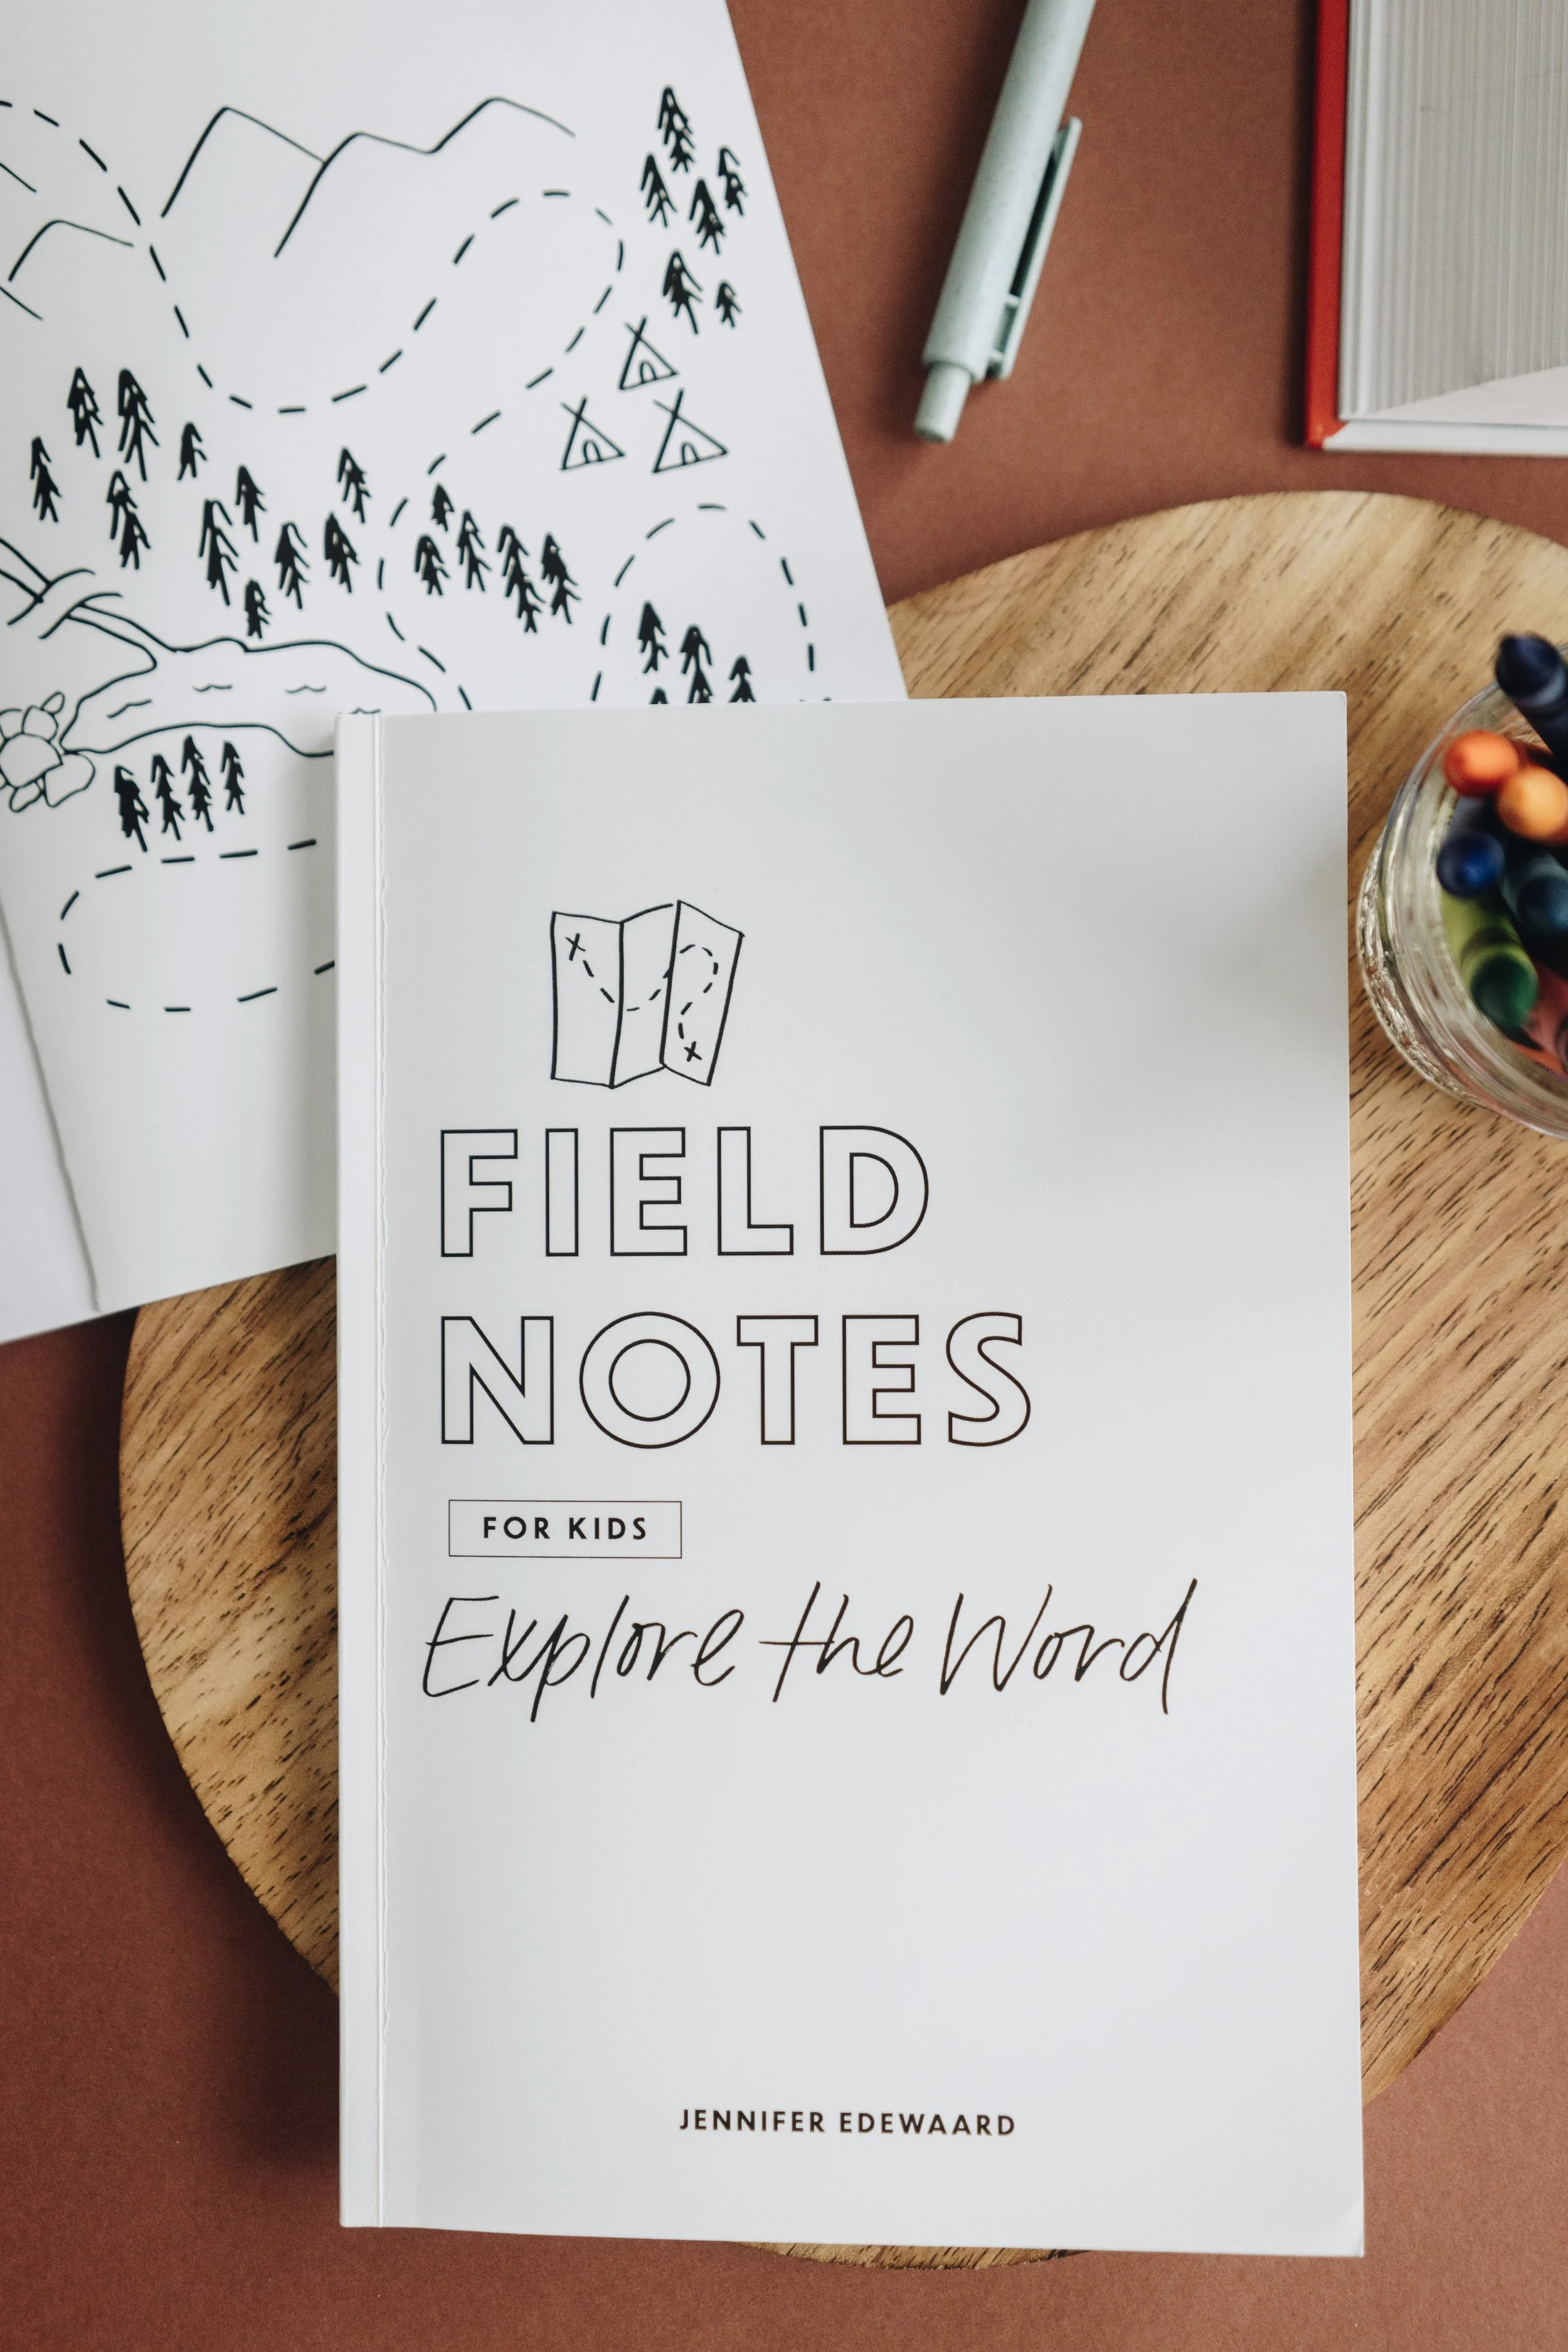 FIELD
NOTES
FOR KIDS
Explore the Word
JENNIFER EDEWAARD